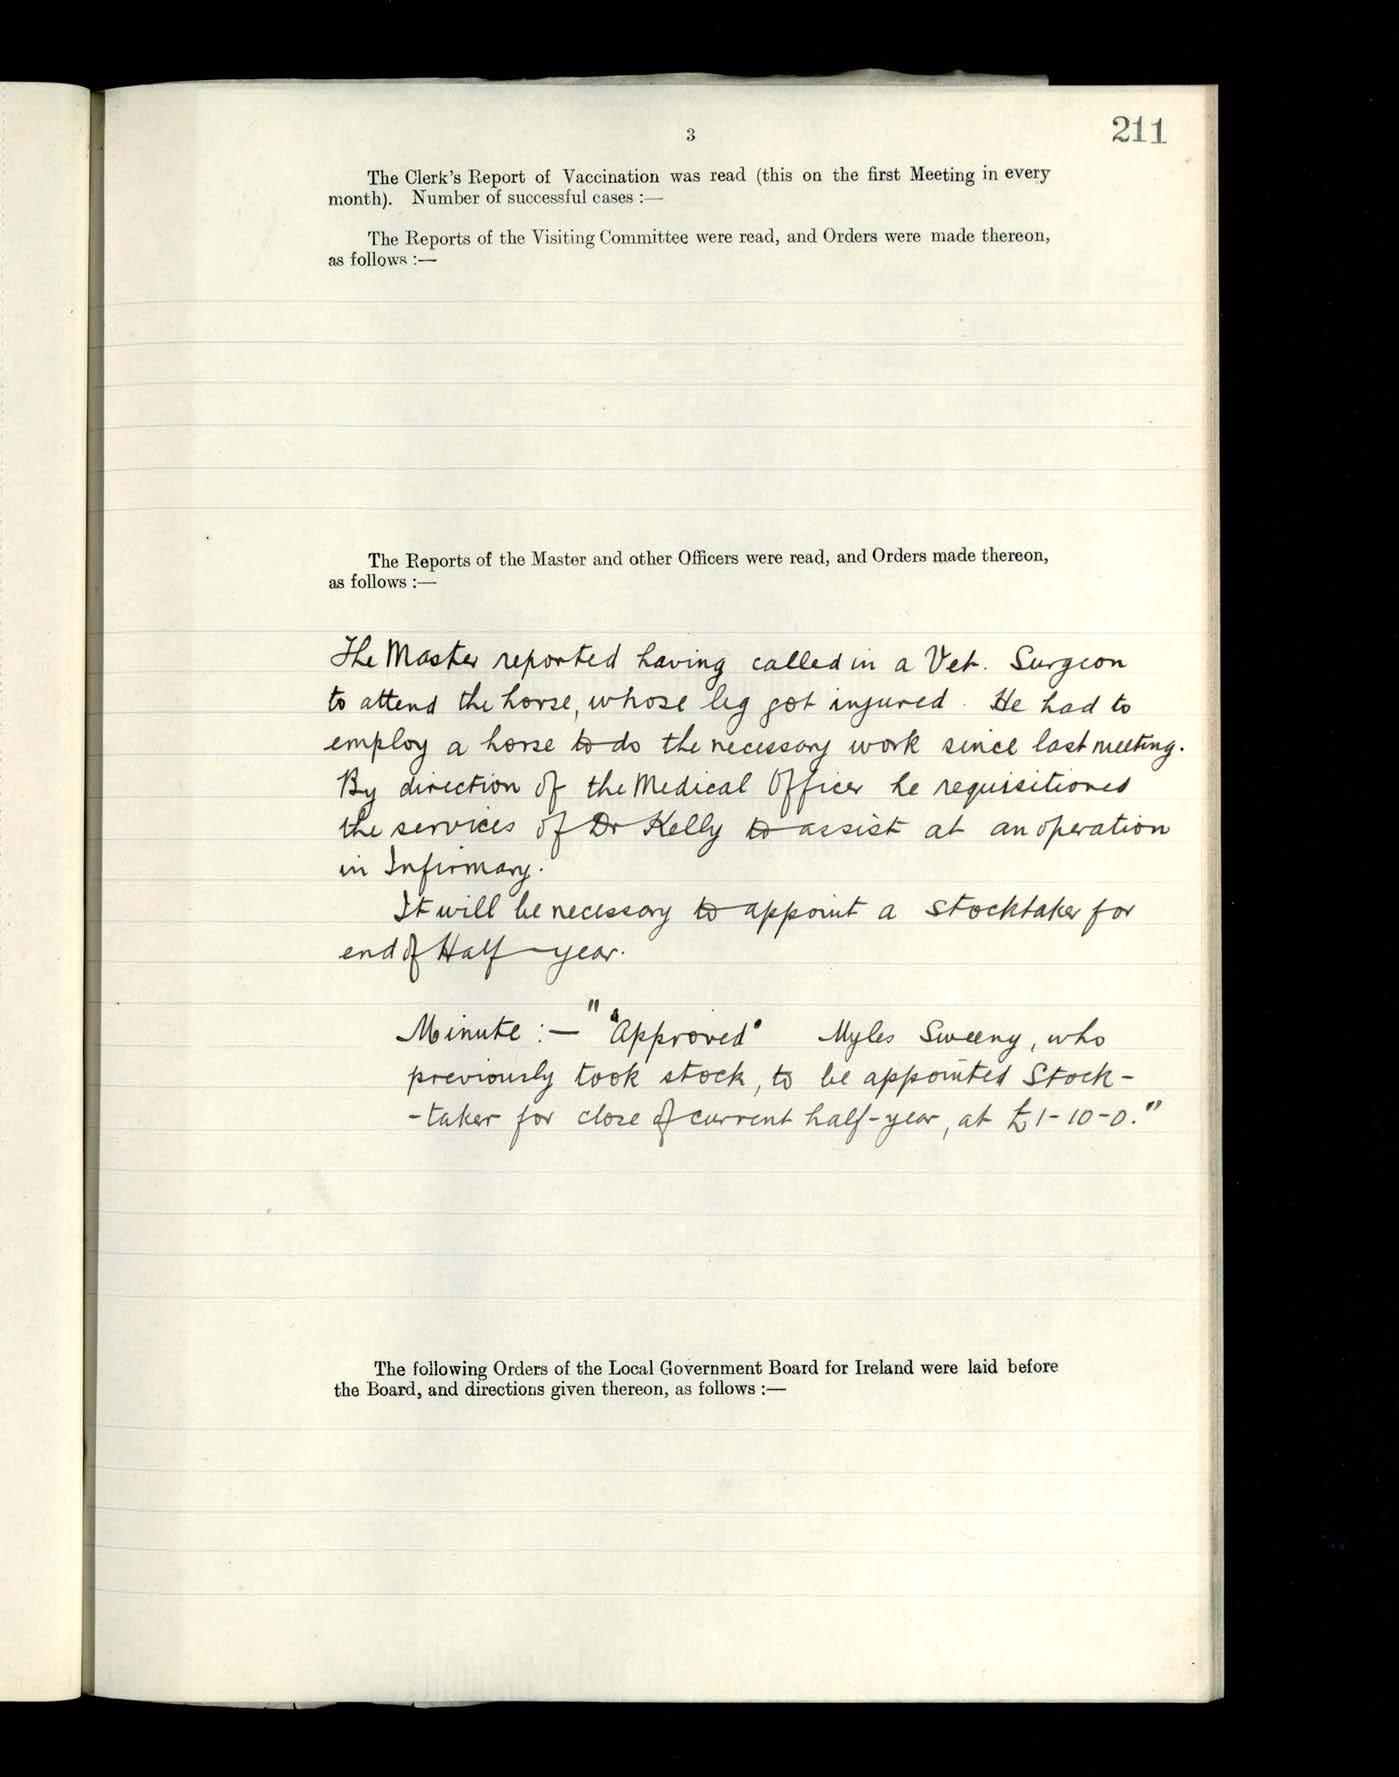 3
211
The Clerk's Report of Vaccination was read (this on the first Meeting in every
month). Number of successful cases :—
The Reports of the Visiting Committee were read, and Orders were made thereon,
as follows :—
The Reports of the Master and other Officers were read, and Orders made thereon,
as follows :—
The Master reported having called in a Vet. Surgeon
to attend the horse, whose leg got injured. He had to
employ a horse to do the necessary work since last meeting.
By direction of the Medical Officer he requisitioned
the services of Dr Kelly to assist at an operation
in Infirmary.
It will be necessary to appoint a Stocktaker for
end of Half-year.
Minute :— " "Approved" Myles Sweeny, who
previously took stock, to be appointed Stock-
-taker for close of current half-year, at £1-10-0."
The following Orders of the Local Government Board for Ireland were laid before
the Board, and directions given thereon, as follows :—